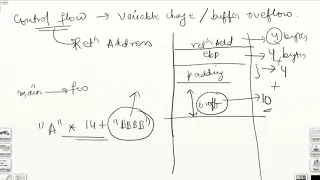 Control flow → variable change / buffer oveflow.
Retⁿ Address
main → foo
"A" * 14 + "BBBB"
retⁿ Add → 4 bytes
ebp → 4 bytes
padding } → 4
+
buff → 10